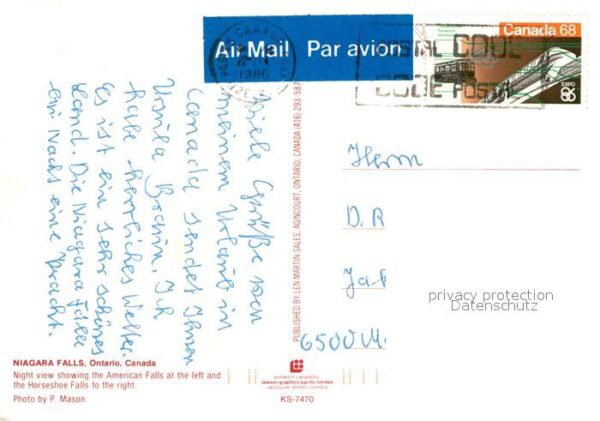 Air Mail Par avion
Canada 68
EXPO
86
1986
POSTAL CODE
CODE POSTAL
Viele Grüße von
meinem Urlaub in
Canada sendet Ihnen
Ursula Ich
habe herrliches Wetter.
Es ist ein sehr schönes
Land. Die Niagara Fälle
bei Nacht eine Pracht.
PUBLISHED BY LEN MARTIN SALES, AGINCOURT, ONTARIO, CANADA (416) 293-587
Herrn
D. R
Jak
6500 M.
privacy protection
Datenschutz
NIAGARA FALLS, Ontario, Canada
Night view showing the American Falls at the left and
the Horseshoe Falls to the right.
Photo by P. Mason
printed in canada by
lawson graphics pacific limited
vancouver, british columbia
KS-7470